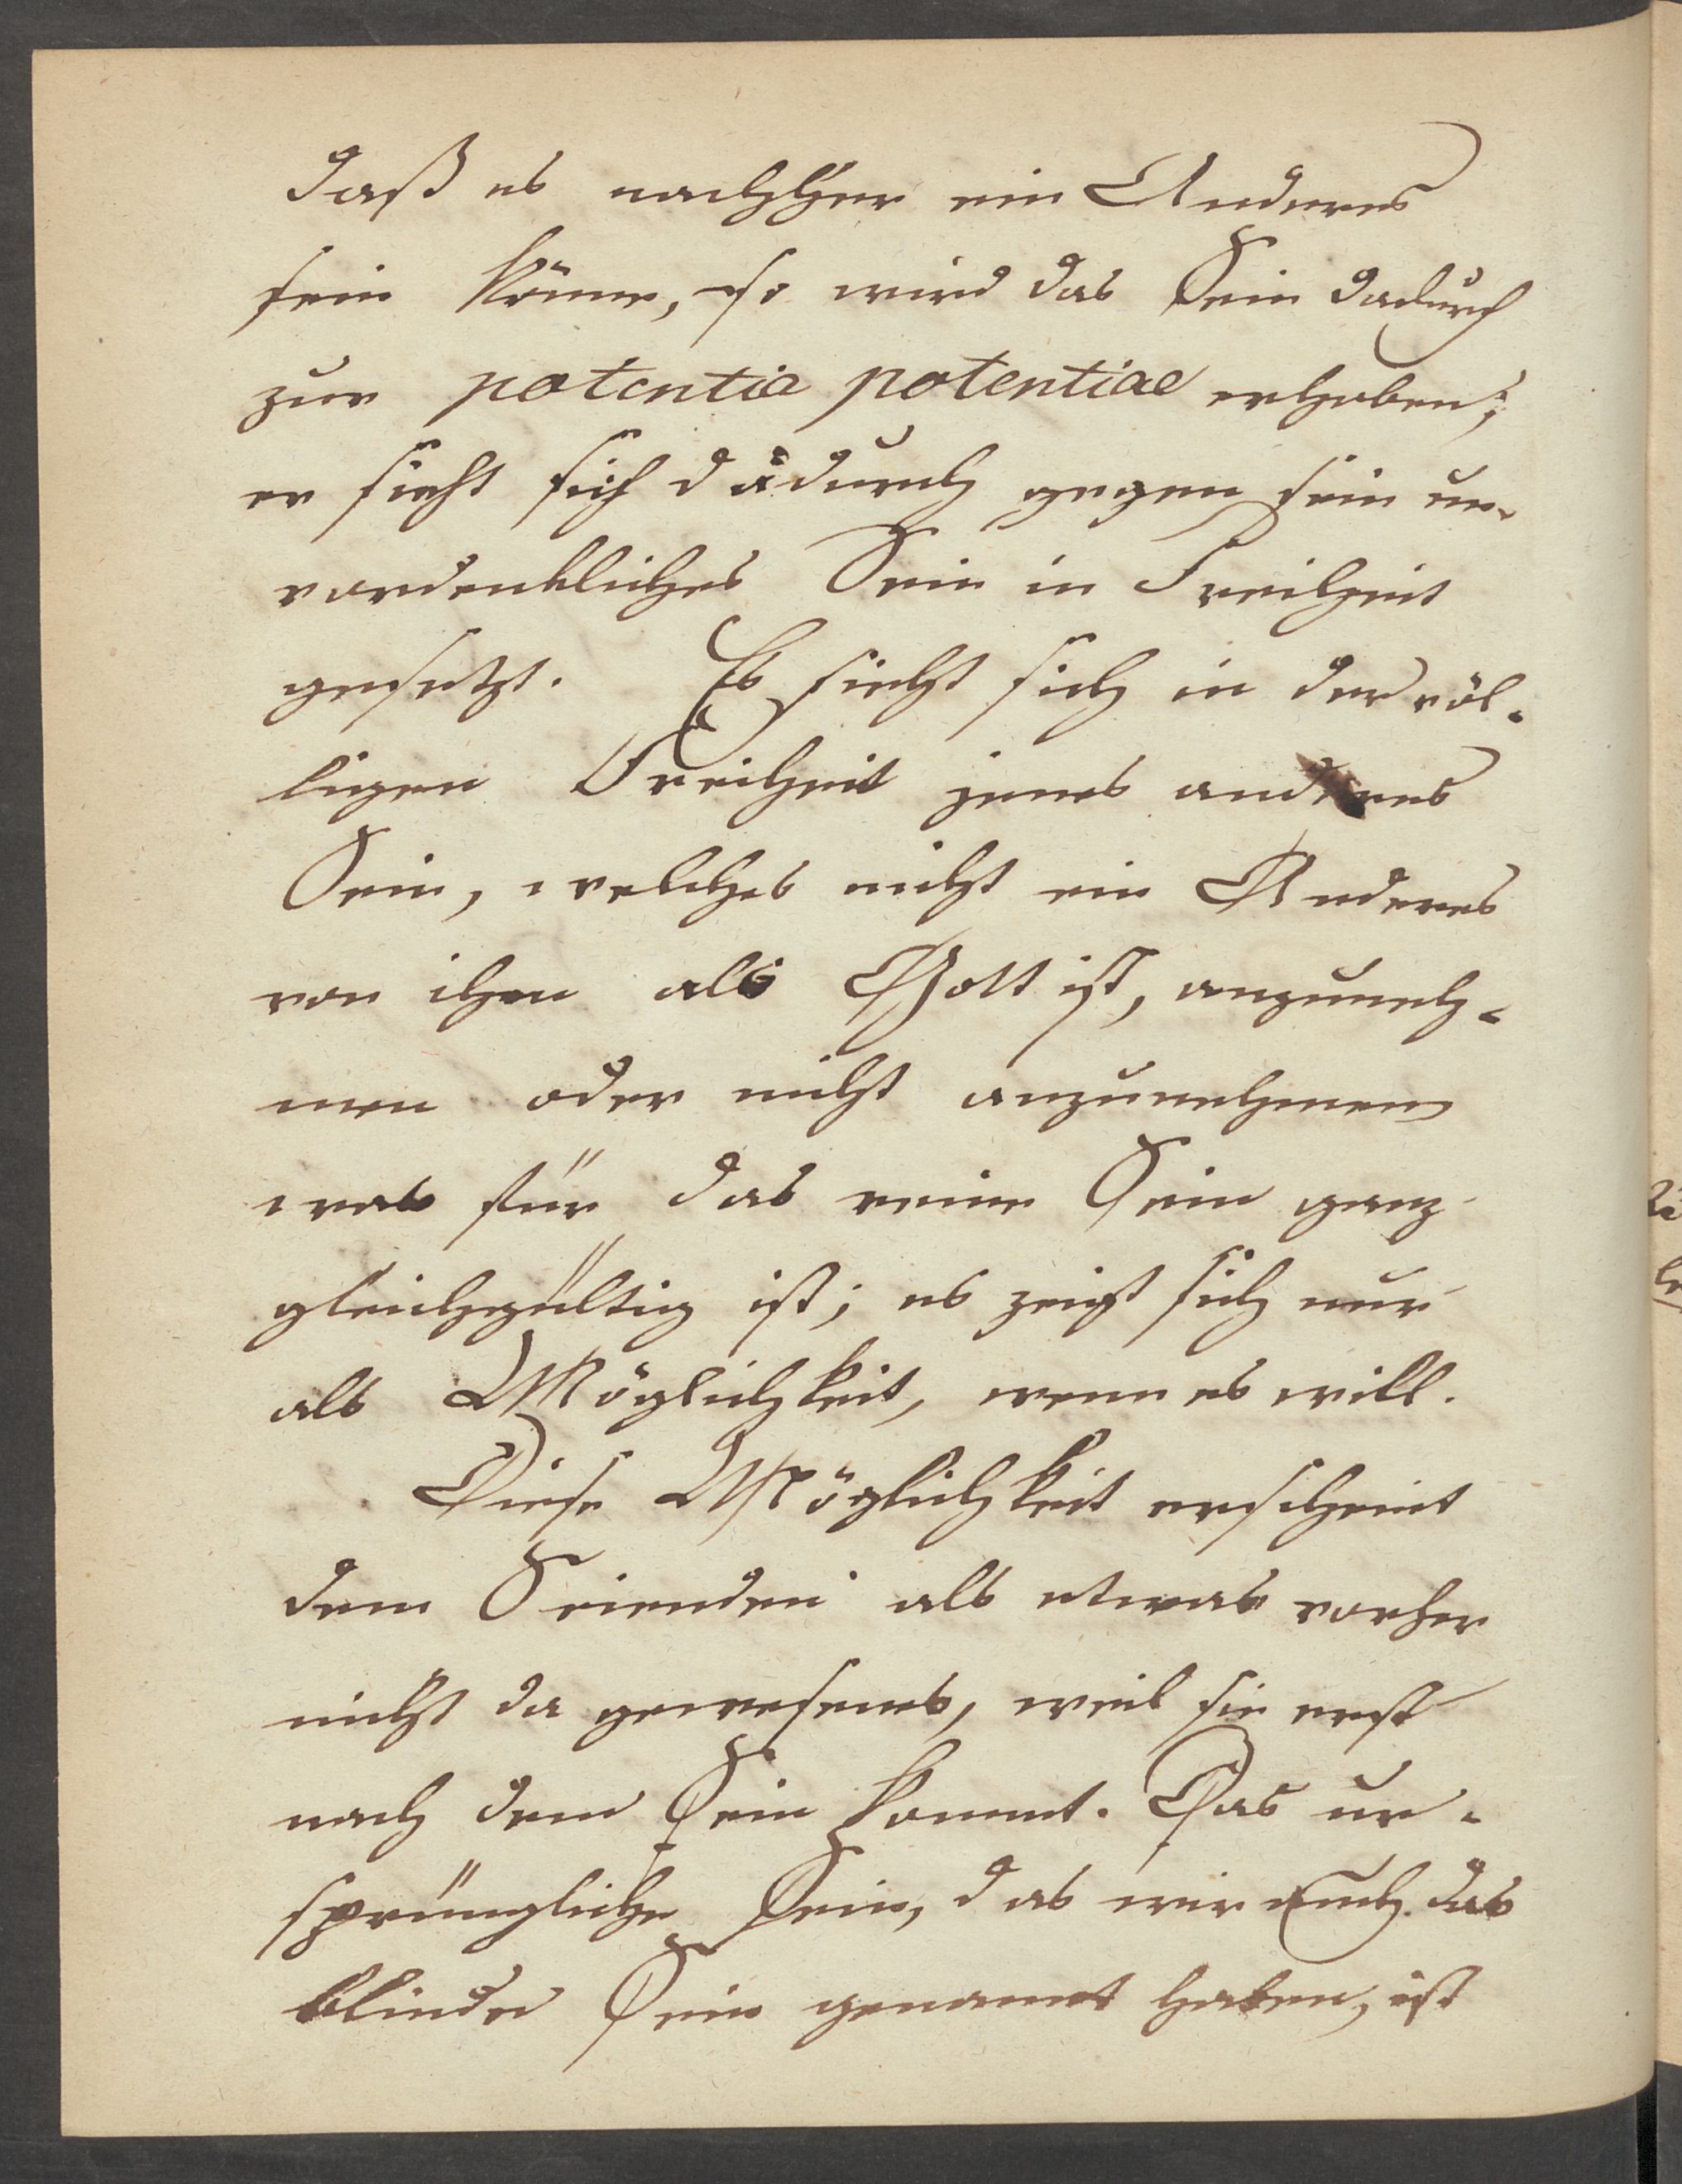 daß es nachher ein Anderes
sein könne, so wird das Sein dadurch
zur potentia potentiae erhoben;
er sieht sich dadurch gegen sein un-
vordenkliches Sein in Freiheit
gesetzt. Es sieht sich in der völ-
ligen Freiheit jenes anderes
Sein, welches nicht ein Anderes
von ihm als Gott ist, anzuneh-
men oder nicht anzunehmen
was für das reine Sein ganz
gleichgültig ist; es zeigt sich nur
als Möglichkeit, wenn es will.
Diese Möglichkeit erscheint
dem Seienden als etwas vorher
nicht da gewesenes, weil sie erst
nach dem Sein kommt. Das ur-
sprüngliche Sein, das wir auch das
blinde Sein genannt haben, ist